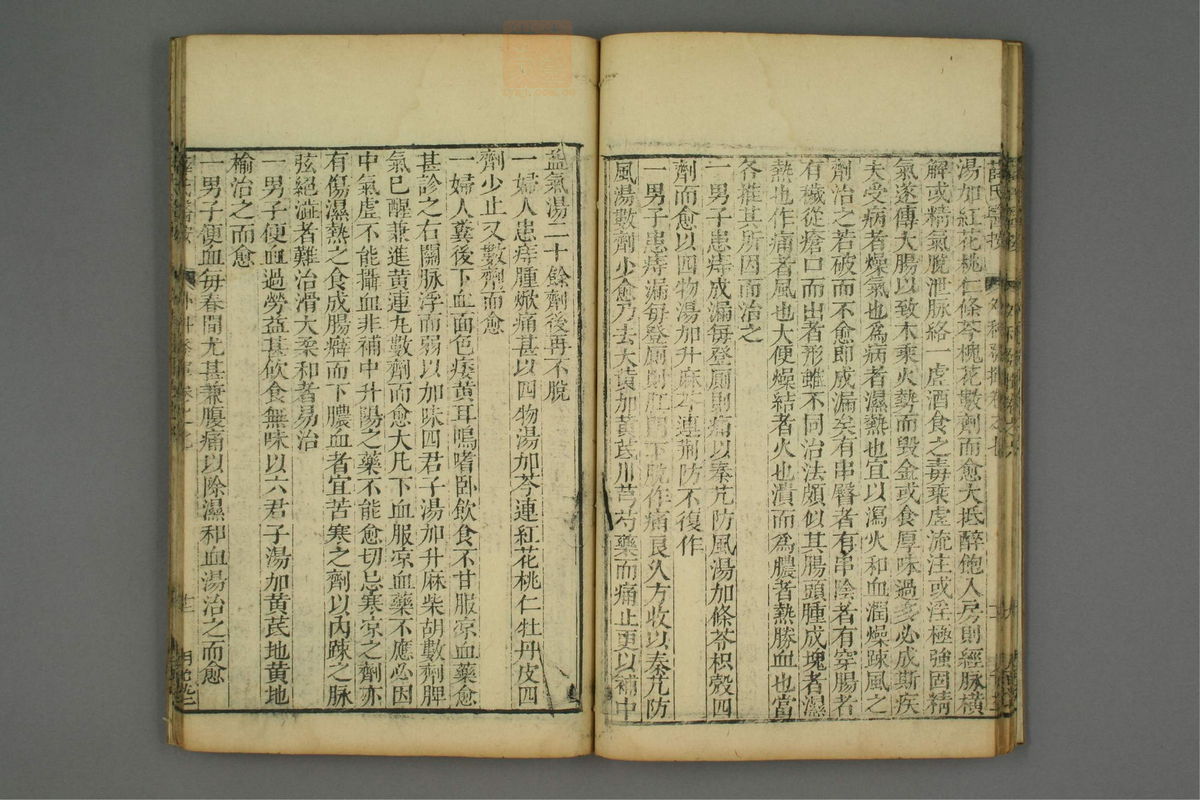 湯加紅花桃仁條芩槐花數劑而愈大抵醉飽入房則經脈橫
解或精氣脫泄脉絡一虛酒食之毒乘虛流注或淫極強固精
氣遂傳大腸以致木乘火勢而毀金或食厚味過多必成斯疾
夫受病者燥氣也為病者濕熱也宜以瀉火和血潤燥踈風之
劑治之若破而不愈即成漏矣有串臀者有串陰者有穿腸者
有穢從瘡口而出者形雖不同治法頗似其腸頭腫成塊者濕
熱也作痛者風也大便燥結者火也潰而爲膿者熱勝血也當
各推其所因而治之
一男子患痔成漏每登厠則痛以秦艽防風湯加條芩枳殼四
劑而愈以四物湯加升麻芩連荆防不復作
一男子患痔漏每登厠則肛門下脫作痛良久方收以秦艽防
風湯數劑少愈乃去大黃加黃芪川芎芍藥而痛止更以補中
益氣湯二十餘劑後再不脫
一婦人患痔腫焮痛甚以四物湯加芩連紅花桃仁牡丹皮四
劑少止又數劑而愈
一婦人糞後下血面色痿黃耳鳴嗜卧飲食不甘服凉血藥愈
甚診之右關脉浮而弱以加味四君子湯加升麻柴胡數劑脾
氣已醒兼進黃連丸數劑而愈大凡下血服凉血藥不應必因
中氣虛不能攝血非補中升陽之藥不能愈切忌寒凉之劑亦
有傷濕熱之食成腸癖而下膿血者宜苦寒之劑以內踈之脉
弦絕澁者難治滑大柔和者易治
一男子便血過勞益甚飲食無味以六君子湯加黃芪地黃地
榆治之而愈
一男子便血每春間尤甚兼腹痛以除濕和血湯治之而愈